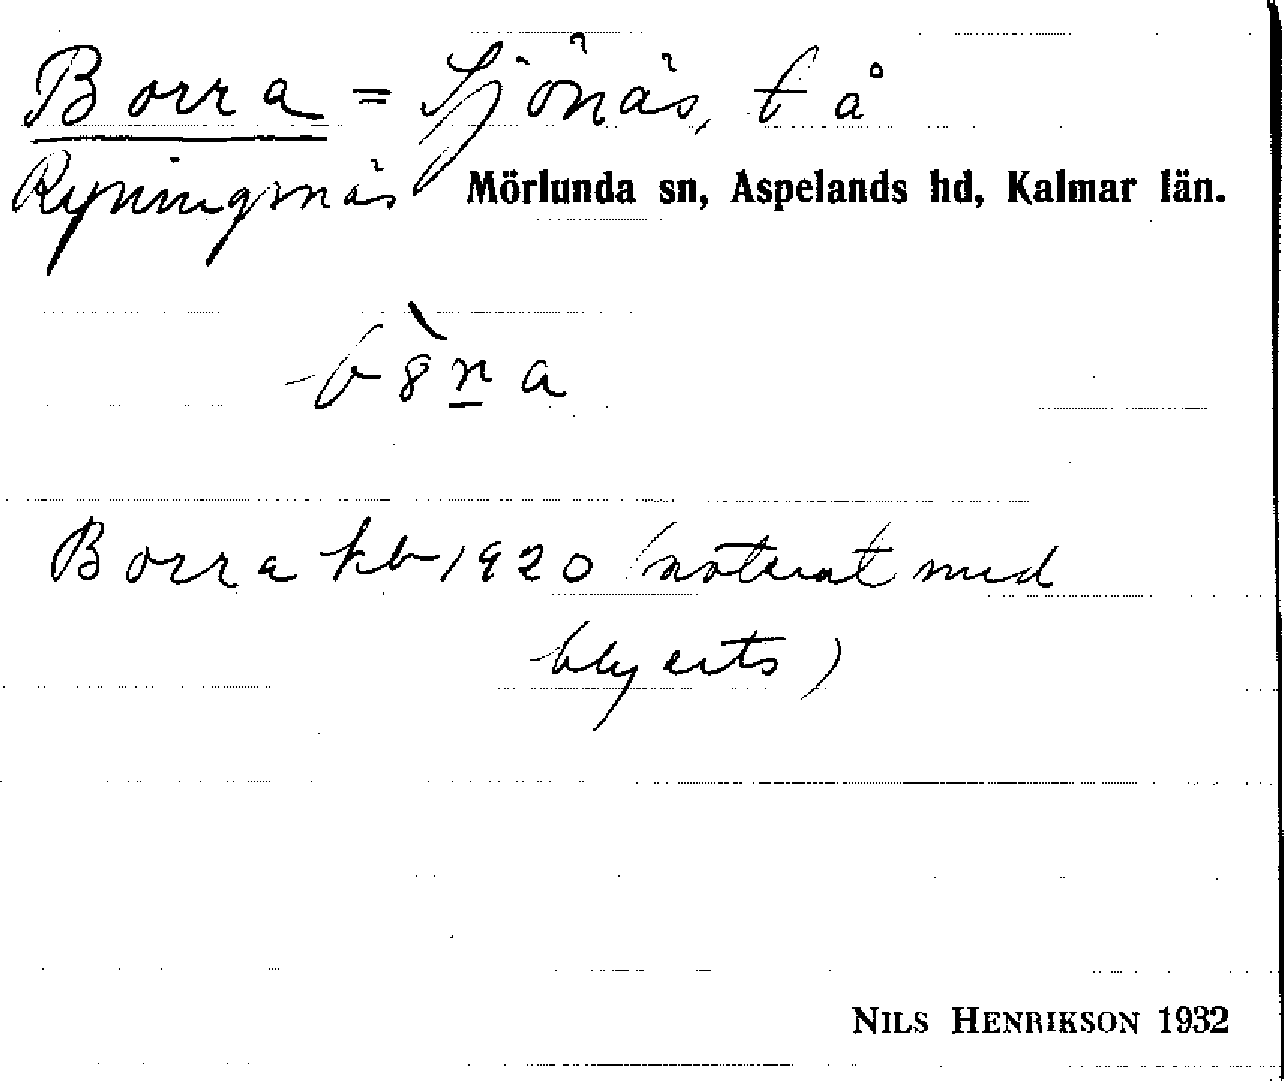 Borra = Sjönäs, t å
Ryningsnäs Mörlunda sn, Aspelands hd, Kalmar län.
Borra kb 1920 (noterat med
blyerts)
NILS HENRIKSON 1932